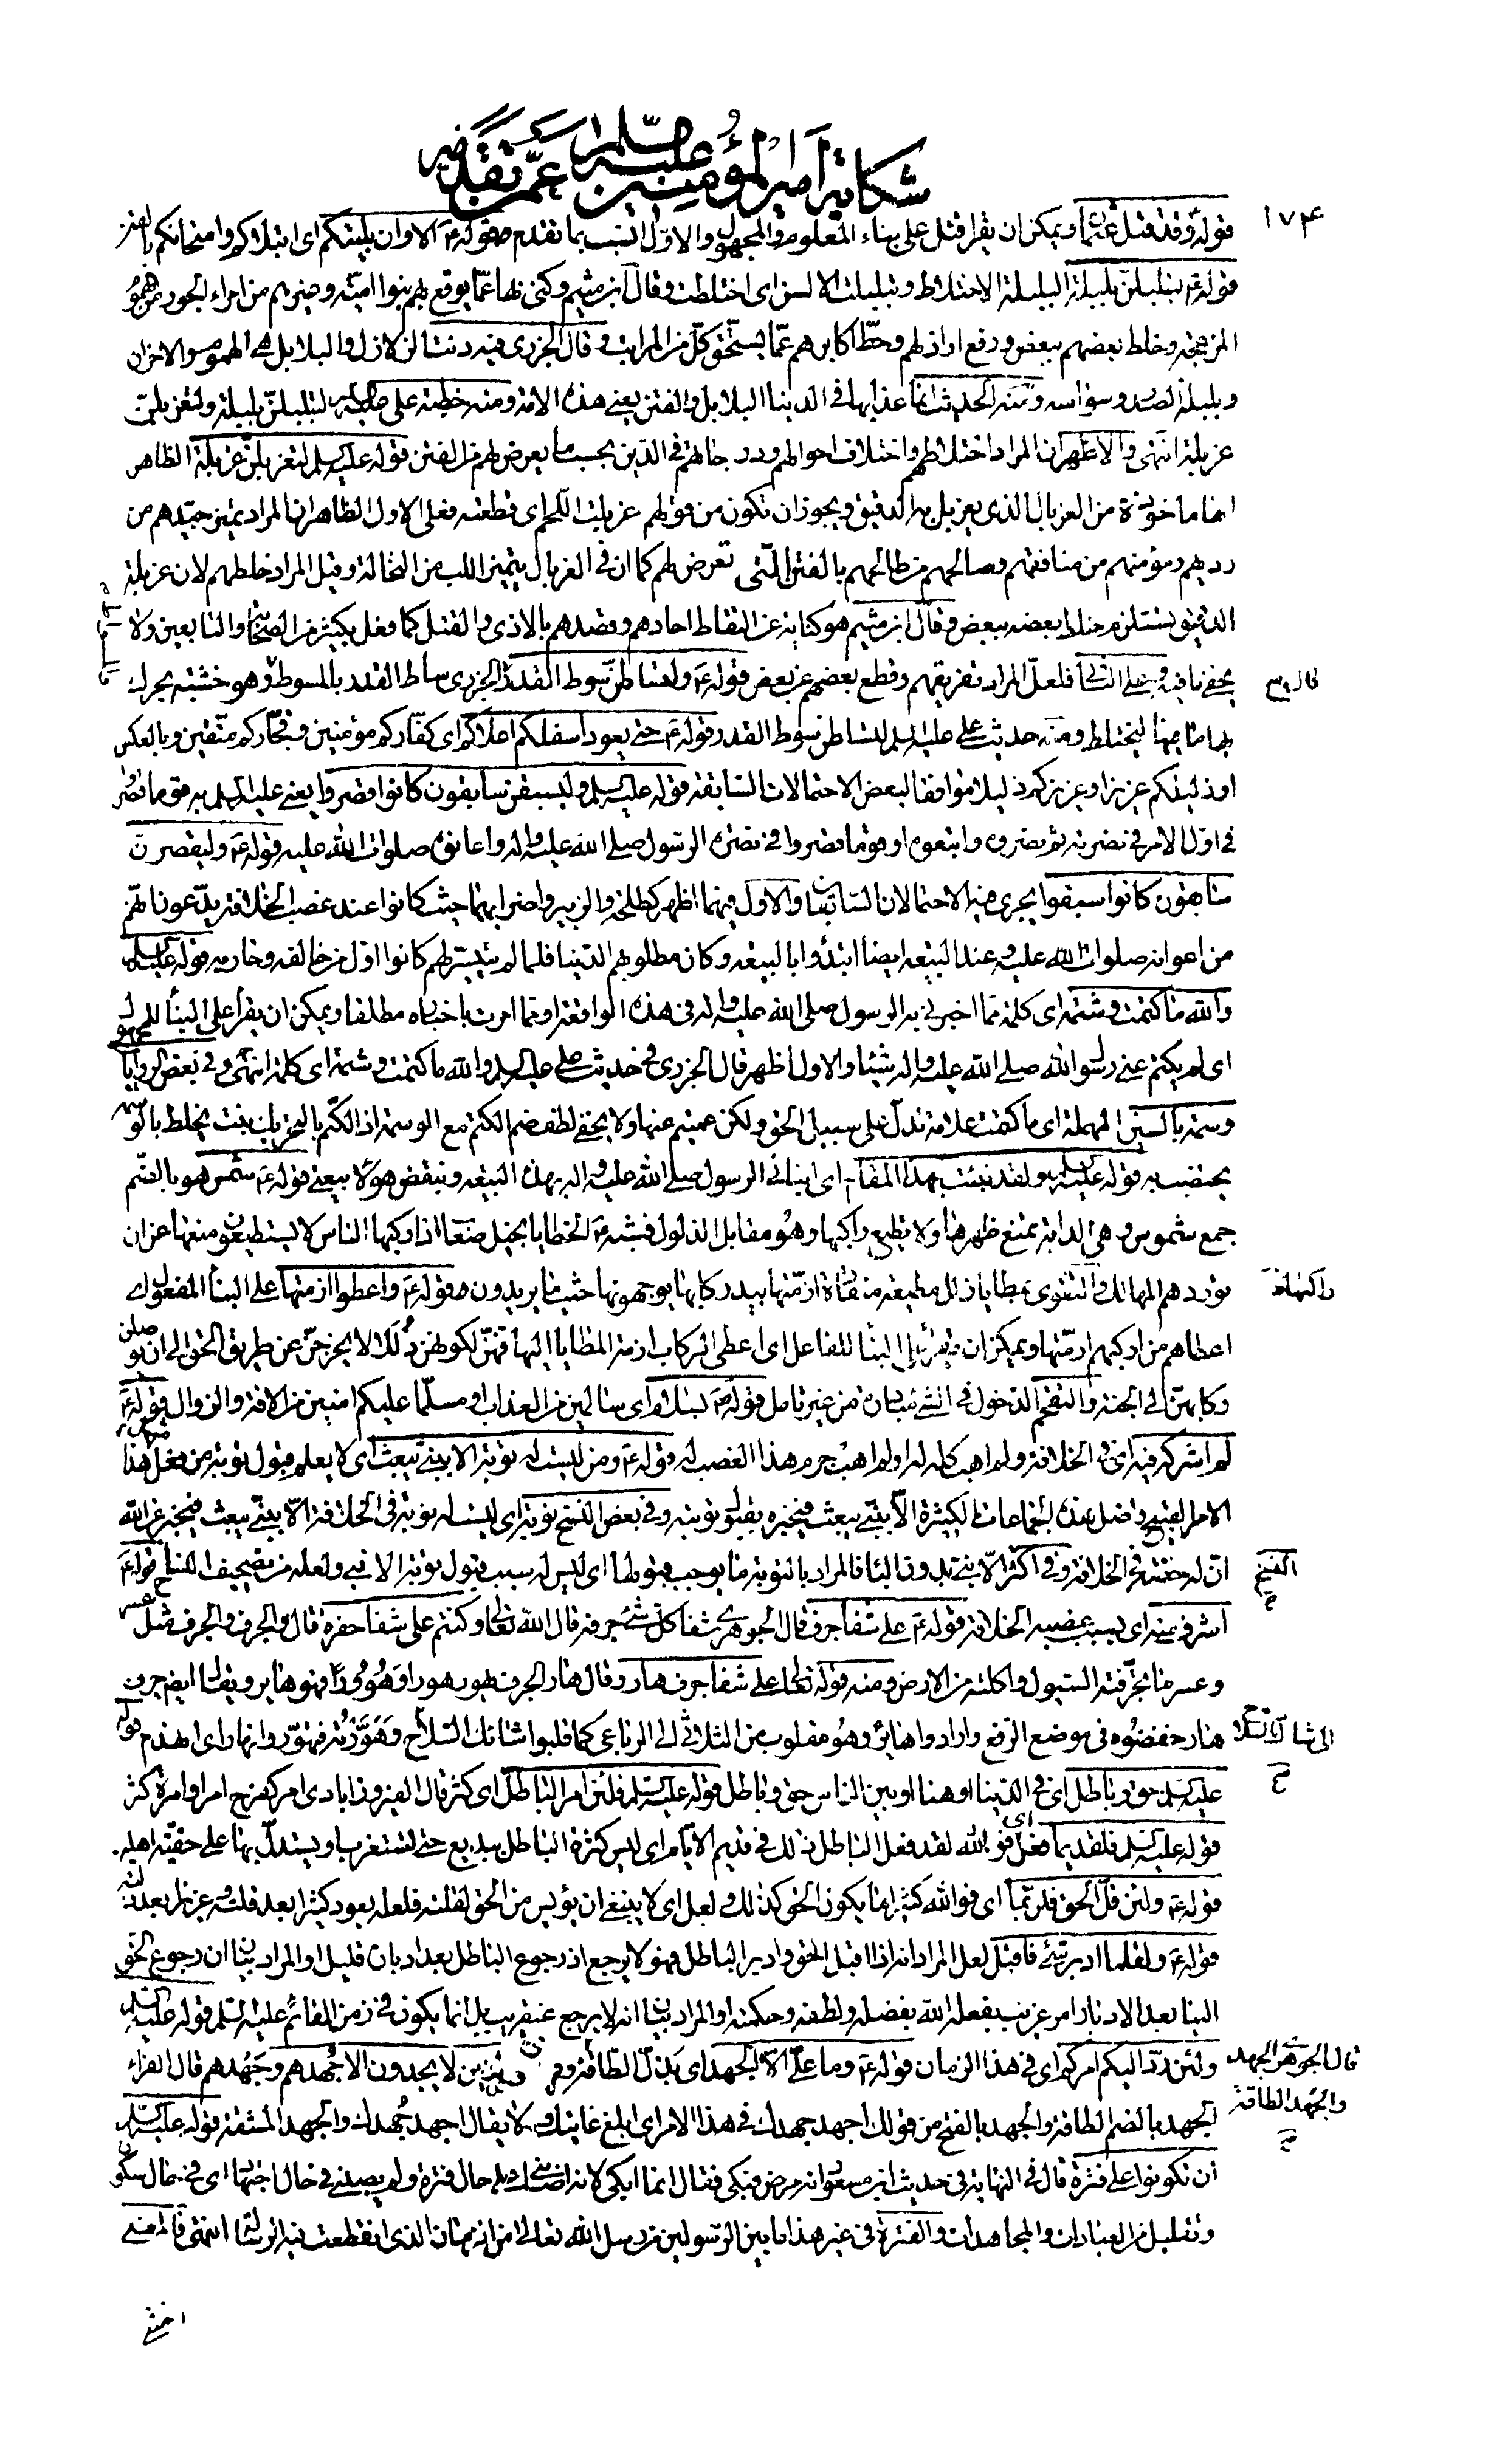 شكاية امير المؤمنين صلى الله عليه عمن تقدمه
١٧۴
قوله وقد قتل عثمان ويمكن ان يقرا قتل على بناء المعلوم والمجهول والاول انسب بما تقدم قوله ع الا وان بليتكم اى ابتلائكم وامتحانكم بالفتن
قوله ع لتبلبلن بلبلة البلبلة الاختلاط وتبلبلت الالسن اى اختلطت وقال ابن ميثم وكنى بها عما يوقع بهم بنوا امية وغيرهم من امراء الجور من الهموم
المزعجة وخلط بعضهم ببعض ورفع اراذلهم وحط اكابرهم عما يستحق كل من المراتب وقال الجزرى فيه دنت الزلازل والبلابل هى الهموم والاحزان
وبلبلة الصدر وسواسه ومنه الحديث انما عذابها فى الدنيا البلابل والفتن يعنى هذه الامة ومنه خطبة على عليه السلم لتبلبلن بلبلة ولتغربلن
غربلة انتهى والاظهر ان المراد اختلاطهم واختلاف احوالهم ودرجاتهم فى الدين بحسب ما يعرض لهم من الفتن قوله عليه السلم لتغربلن غربلة الظاهر
انها ماخوذة من الغربال الذى يغربل به الدقيق ويجوز ان تكون من قولهم غربلت اللحم اى قطعته فعلى الاول الظاهر ان المراد تميز جيدهم من
رديهم ومؤمنهم من منافقهم وصالحهم من طالحهم بالفتن التى تعرض لهم كما ان فى الغربال يتميز اللب من النخالة وقيل المراد خلطهم لان غربلة
الدقيق يستلزم خلط بعضه ببعض وقال ابن ميثم هو كناية عن التقاط احادهم وقصدهم بالاذى والقتل كما فعل بكثير من الصحابة والتابعين ولا
يخفى ما فيه وعلى الثانى فلعل المراد تفريقهم وقطع بعضهم عن بعض قوله ع ولتساطن سوط القدر الجزرى ساط القدر بالمسوط وهو خشبة يحرك
قال
بها ما فيها ليختلط ومنه حديث على عليه السلم لتساطن سوط القدر قوله ع حتى يعود اسفلكم اعلاكم اى كفاركم مؤمنين وفجاركم متقين وبالعكس
او ذليلكم عزيزا وعزيزكم ذليلا موافقا لبعض الاحتمالات السابقة قوله عليه السلم وليسبقن سابقون كانوا قصروا يعنى عليه السلم به قوما قصروا
فى اول الامر فى نصرته ثم نصروه واتبعوه او قوما قصروا فى نصرة الرسول صلى الله عليه واله واعانوه صلوات الله عليه قوله ع وليقصرن
سابقون كانوا سبقوا يجرى فيه الاحتمالان السابقان والاول فيهما اظهر كطلحة والزبير واضرابهما حيث كانوا عند غصب الخلافة يدعون انهم
من اعوانه صلوات الله عليه وعند البيعة ايضا ابتدؤا بالبيعة وكان مطلوبهم الدنيا فلما لم يتيسر لهم كانوا اول من خالفه وحاربه قوله عليه السلم
والله ما كتمت وشمة اى كلمة مما اخبرنى به الرسول صلى الله عليه واله فى هذه الواقعة او مما امرت باخباره مطلقا ويمكن ان يقرأ على البناء للمجهول
اى لم يكتم عنى رسول الله صلى الله عليه واله شيئا والاول اظهر قال الجزرى فى حديث على عليه السلم والله ما كتمت وشمة اى كلمة انتهى وفى بعض الروايات
وسمة بالسين المهملة اى ما كتمت علامة تدل على سبيل الحق ولكن عميتم عنها ولا يخفى لطف ضم الكتم مع الوسمة اذ الكتم بالتحريك نبت يخلط بالوسمة
يختضب به قوله عليه السلم ولقد نبئت بهذا المقام اى انبانى الرسول صلى الله عليه واله بهذه البيعة وبنقض هؤلاء بيعتى قوله ع شمس هو بالضم
جمع شموس وهى الدابة تمنع ظهرها ولا تطيع راكبها وهو مقابل الذلول فشبه ع الخطايا بخيل صعاب اذا ركبها الناس لا يستطيعون منعها عن ان
توردهم المهالك والتقوى بمطايا ذلل مطيعة منقادة ازمتها بيد ركابها يوجهونها حيث ما يريدون قوله ع واعطوا ازمتها على البناء المفعول اى
اعطاهم من اركبهم ازمتها ويمكن ان يقرء على البناء للفاعل اى اعطى الركاب ازمة المطايا اليها فهن لكونهن ذللا لا يخرجن عن طريق الحق الى ان يوصلن
ركابهن الى الجنة والتقحم الدخول فى الشئ مبادرة من غير تامل قوله ع بسلام اى سالمين من العذاب او مسلما عليكم امنين من الافة والزوال قوله ع
لم اشركه فيه اى فى الخلافة ولم اهب كله له او لم اهب جرم هذا الغصب له قوله ع ومن ليست له توبة الا بنبى يبعث اى لا يعلم قبول توبة من فعل هذا
الامر القبيح واضل هذه الجماعات الكثيرة الا بنبى يبعث فيخبره بقبول توبته وفى بعض النسخ نوبة اى ليست له نوبة فى الخلافة الا بنبى يبعث فيخبر عن الله
ان له حقا فى الخلافة وفى اكثر الا نبى بدون الباء فالمراد بالتوبة ما يوجب قبولها اى ليس له سبب قبول توبة الا نبى ولعله من تصحيف النساخ قوله ع
النسخ صح
اشرف منه اى بسبب غصبه الخلافة قوله ع على شفا جرف قال الجوهرى شفا كل شئ حرفه قال الله تعالى وكنتم على شفا حفرة قال والجرف والجرف مثل عسر
وعسر ما تجرفته السيول واكلته من الارض ومنه قوله تعالى على شفا جرف هار وقال هار الجرف يهور هورا وهؤورا فهو هاير ويقال ايضا جرف
هار خفضوه فى موضع الرفع وارادوا هائر وهو مقلوب من الثلاثى الى الرباعى كما قلبوا شائك السلاح وهورته فتهور وانهار اى انهدم قوله
الى شاكى السلاح صح
عليه السلم حق وباطل اى فى الدنيا او هنا او بين الناس حق وباطل قوله عليه السلم فلئن امر الباطل اى كثر قال الفيروزابادى امر كفرح امرا وامرة كثر
قوله عليه السلم فلقديما فعل اى فو الله لقد فعل الباطل ذلك فى قديم الايام اى ليس كثرة الباطل ببديع حتى تستغرب او يستدل بها على حقية اهله
قوله ع ولئن قل الحق فلربما اى فوالله كثيرا ما يكون الحق كذلك ولعل اى لا ينبغى ان يؤيس من الحق لقلته فلعله يعود كثيرا بعد قلته وعزيزا بعد ذلته
قوله ع ولقلما ادبر شئ فاقبل لعل المراد انه اذا اقبل الحق وادبر الباطل فهو لا يرجع اذ رجوع الباطل بعد ادباره قليل او المراد بيان ان رجوع الحق
الينا بعد الادبار امر غريب يفعله الله بفضله ولطفه وحكمته او المراد بيان انه لا يرجع عنقريب بل انما يكون فى زمن القائم عليه السلم قوله عليه السلم
ولئن رد اليكم امركم اى فى هذا الزمان قوله ع وما على الا الجهد اى بذل الطاقة وقرئ والذين لا يجدون الا جهدهم وجهدهم قال الفراء
قال الجوهرى الجهد
والجهد الطاقة
الجهد بالضم الطاقة والجهد بالفتح من قولك اجهد جهدك فى هذا الامر اى ابلغ غايتك ولا يقال اجهد جهدك والجهد المشقة قوله عليه السلم
ان تكونوا على فترة قال فى النهاية فى حديث ابن مسعود انه مرض فبكى فقال انما ابكى لانه اصابنى على حال فترة ولم يصبنى فى حال اجتهاد اى فى حال سكون
وتقليل من العبادات والمجاهدات والفترة فى غير هذا ما بين الرسولين من رسل الله تعالى من الزمان الذى انقطعت فيه الرسالة انتهى فالمعنى